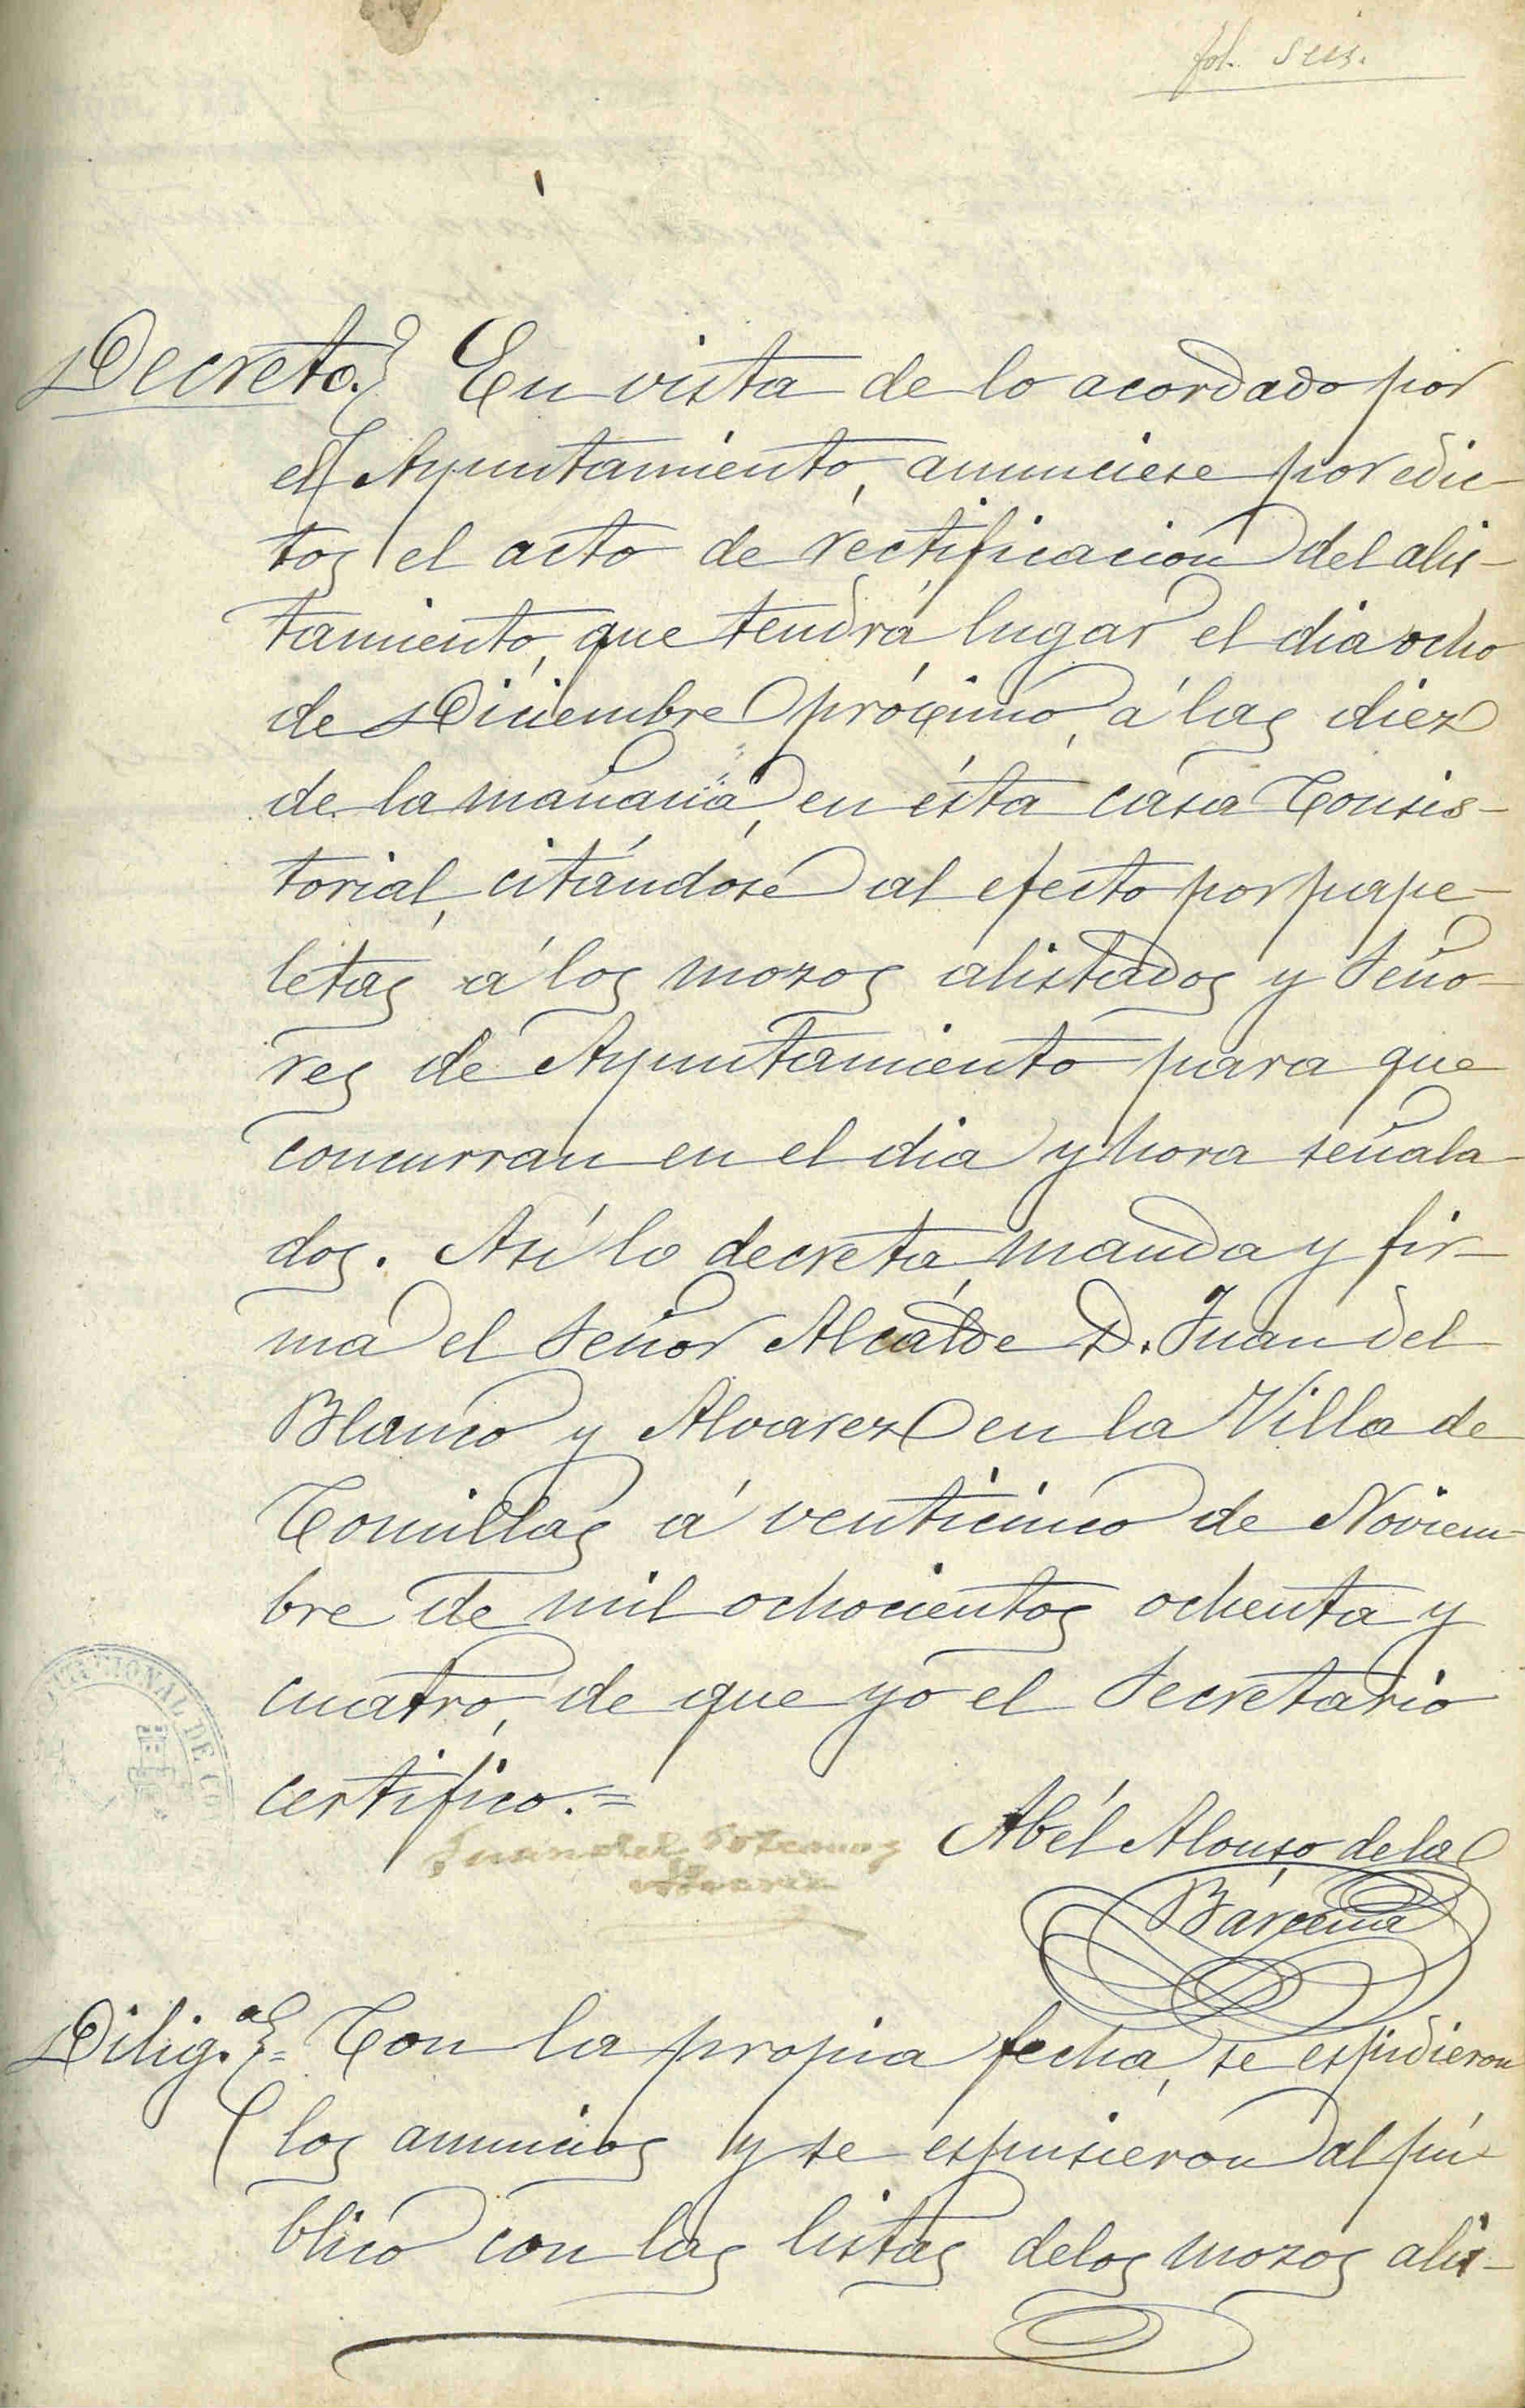 fol. seis.
Decreto. En vista de lo acordado por
el Ayuntamiento, anunciese por edic-
tos el acto de rectificación del alis-
tamiento, que tendrá lugar el dia ocho
de Diciembre próximo, á las diez
de la mañana, en ésta casa Consis-
torial, citándose al efecto por pape-
letas á los mozos alistados y Seño-
res de Ayuntamiento para que
concurran en el dia y hora señala-
dos. Así lo decreta, manda y fir-
ma el Señor Alcalde D. Juan del
Blanco y Alvarez en la Villa de
Comillas á venticinco de Noviem-
bre de mil ochocientos ochenta y
cuatro, de que yo el Secretario
certifico.=
Juan del
Abél Alonso de la
Bárcena
Dilig.ª = Con la propia fecha, se espidieron
los anuncios y se espusieron al pú-
blico con las listas de los mozos alis-
CIONAL DE CO